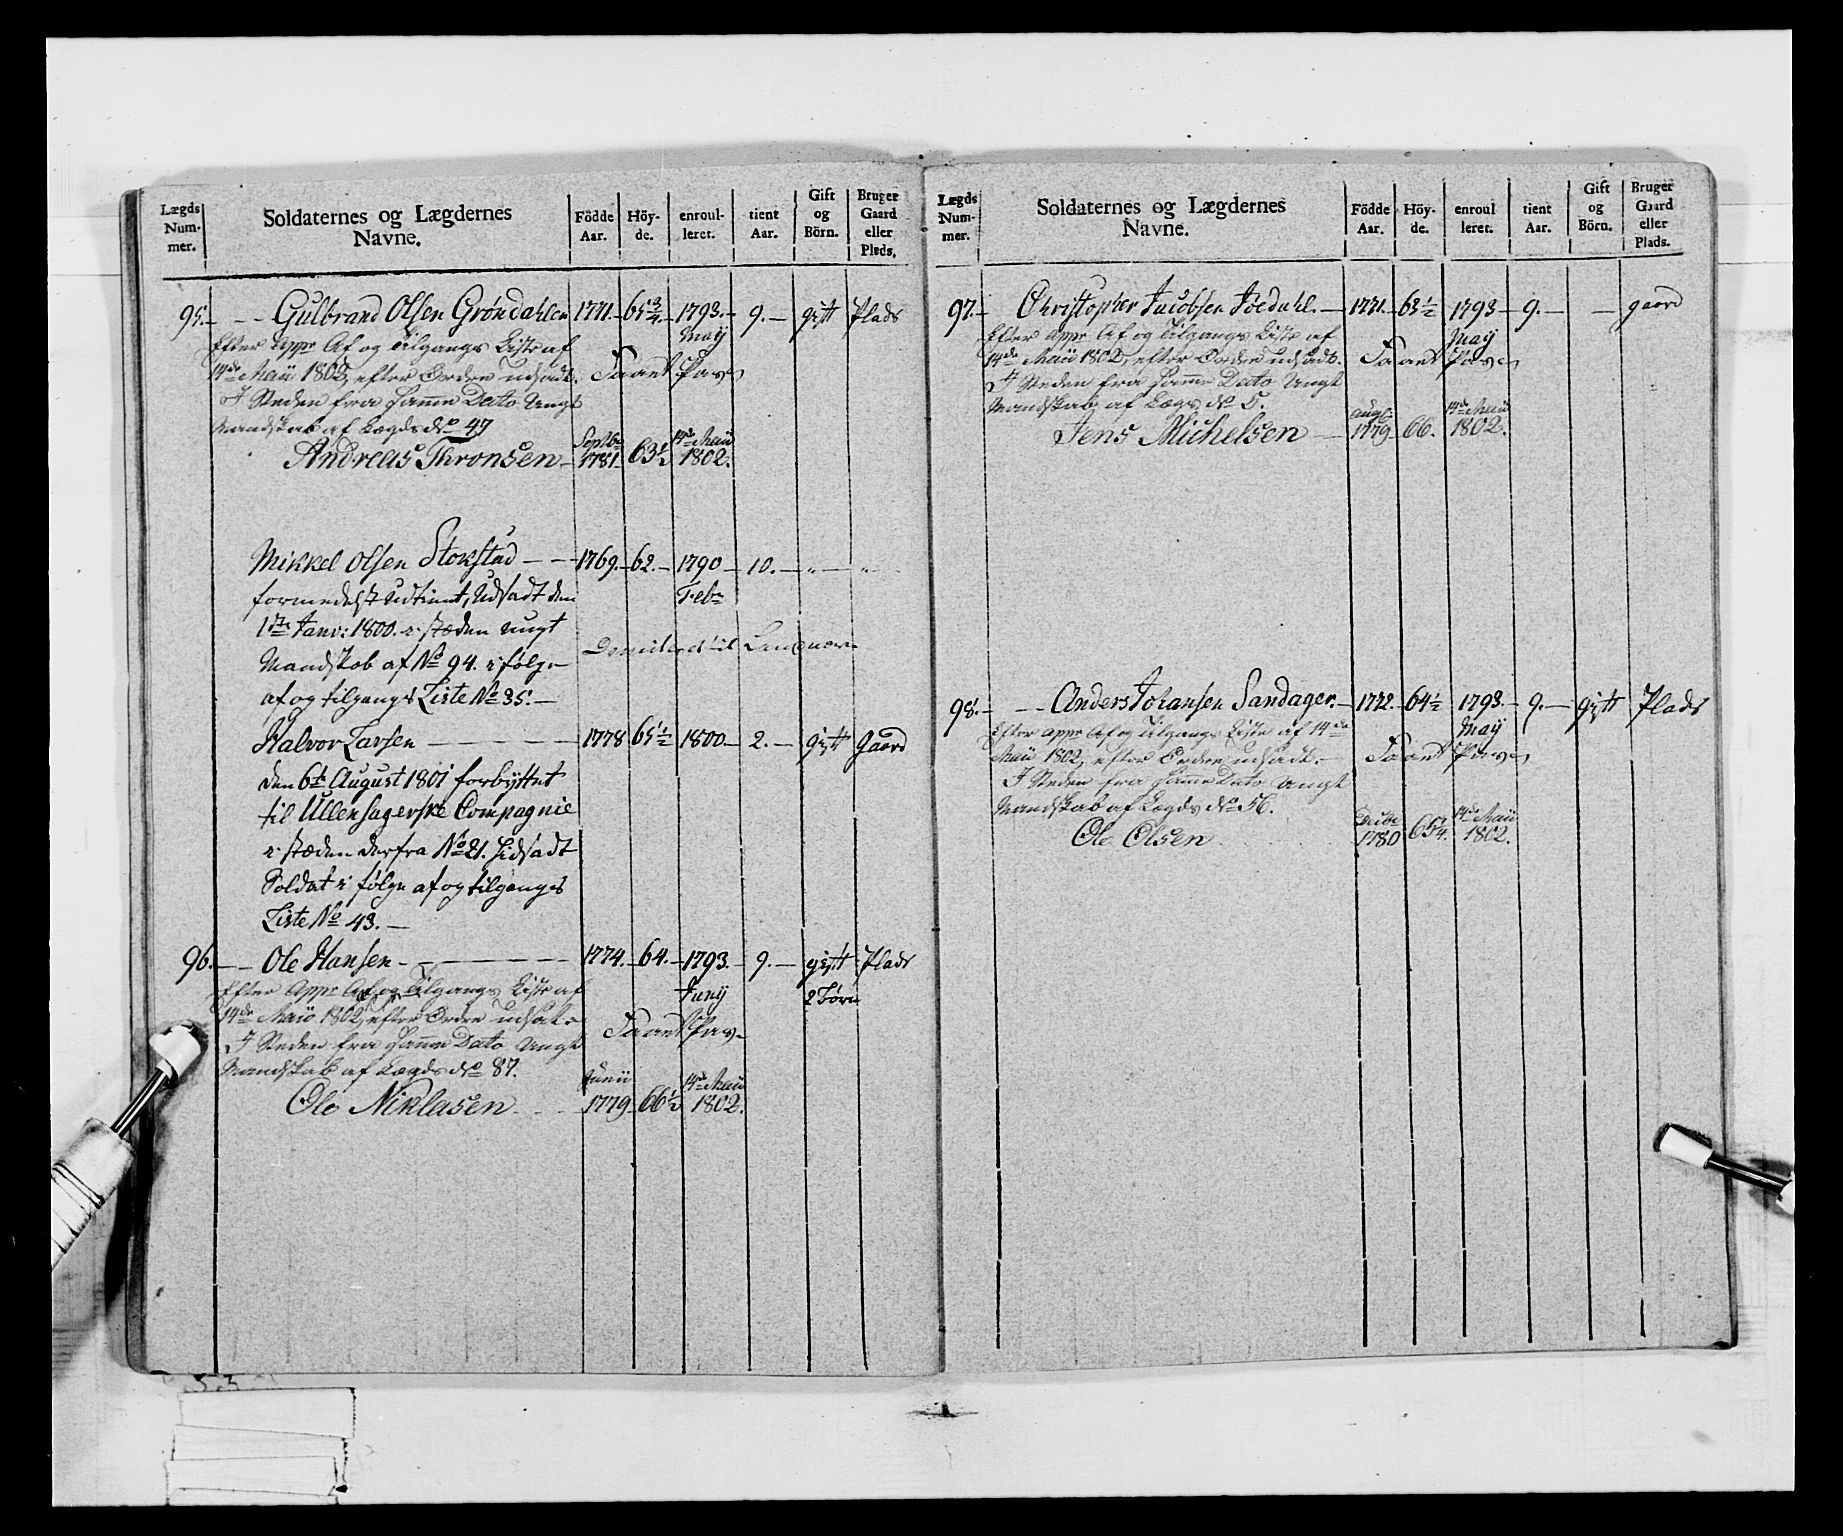 Lægds Num- mer. Soldaternes og Lægdernes Navne. Födde Aar. Höy- de. enroul- leret. tient Aar. Gift og Börn. Bruger Gaard eller Plads.
95. – – Gulbrand Olsen Grøndahlen 1771. 65 3/4. 1793. 9. – gift Plads
Efter Appr Af og Tilgangs Liste af May
14de Maii 1802, efter Ordre udsadt. Faaet Pas
I Steden fra samme Dato Ungt
Mandskab af Lægds No 47
Septbr 14de Maii
Andreas Thronsen – 1781 – 63 1/2 1802.
Mikkel Olsen Stokstad – – 1769. – 62. – 1790 – 10. – " – "
formedelst Udtient, Udsadt den Febr
1ste Janv: 1800. i stæden ungt
Mandskab af No 94. i følge
af og tilgangs Liste No 35. –
Halvor Larsen – – – 1778 65 1/2 1800. – 2. – gift Gaard
den 6te August 1801 forbyttet
til Ullensagerske Compagnie
i stæden derfra No 21. hidsadt
Soldat i følge af og tilgangs
Liste No 43. –
96. – – Ole Hansen – – – 1774. 64. – 1793. – 9. – gift Plads
Efter Appr Af og Tilgangs Liste af Juny 2 Børn
14de Maii 1802, efter Ordre udsat. Faaet Pas
I Steden fra samme Dato Ungt
Mandskab af Lægds No 87.
Junii 14de Maii
Ole Niklasen – – 1779 – 66 1/2 1802.
Lægds Num- mer. Soldaternes og Lægdernes Navne. Födde Aar. Höy- de. enroul leret. tient Aar. Gift og Börn. Bruger Gaard eller Plads.
97. – Christopher Jacobsen – 1771. – 63 1/2 1793 – 9. – – gaard
Efter Appr Af og Tilgangs Liste af May
14de Maii 1802, efter Ordre udsadt. Faaet Pas
I Steden fra samme Dato Ungt
Mandskab af Lægds No 5.
Aug. 14de Maii
Jens Michelsen – 1779 – 66. 1802.
98. – – Anders Johansen Sandager. – 1772. – 64 1/2 1793. – 9. – gift Plads
Efter Appr Af og Tilgangs Liste af 14de May
Maii 1802, efter Ordre udsadt. – Faaet Pas
I Steden fra samme Dato Ungt
Mandskab af Lægds No 56.
14de Maii
Ole Olsen 1780 1802.